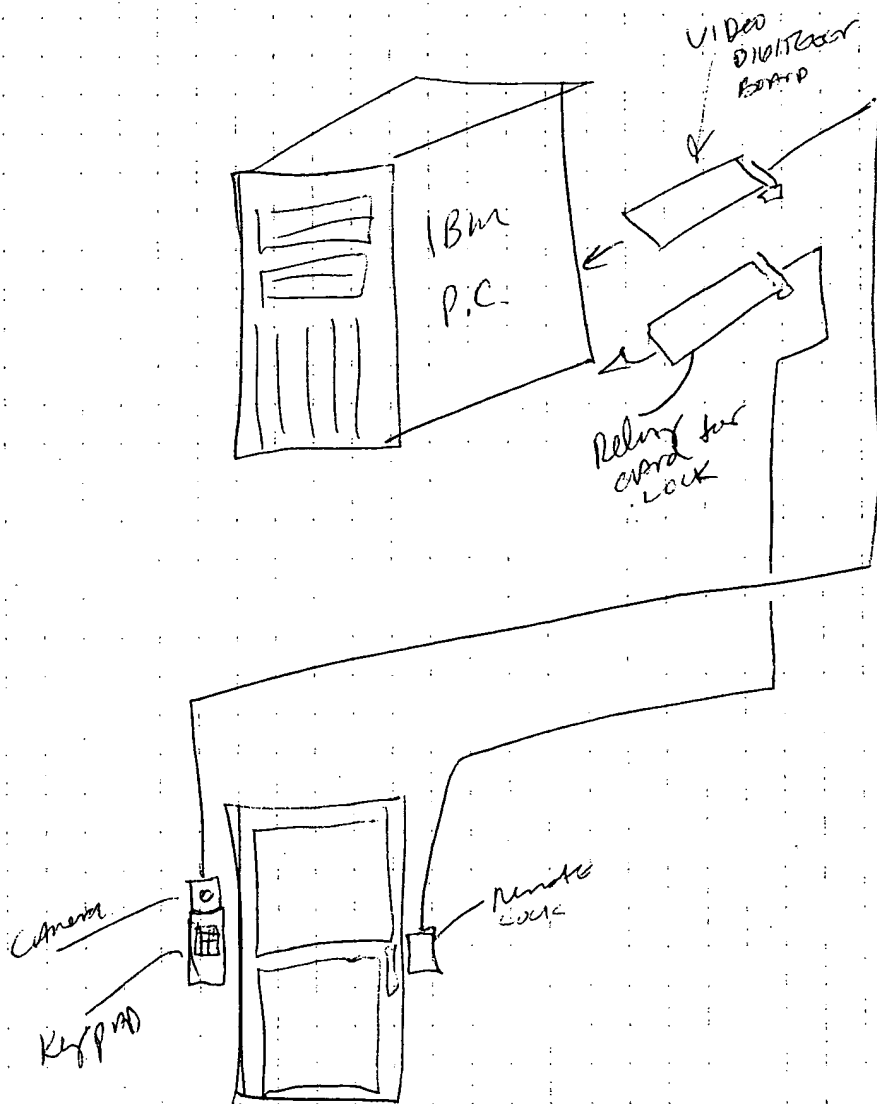 VIDEO
DIGITIZER
BOARD
IBM
P.C.
Relay for
CARD
LOCK
Camera
Remote
LOCK
KeyPAD